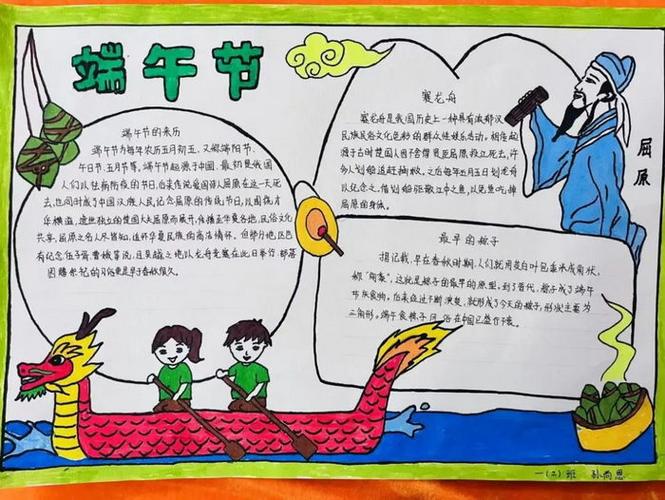 端午节
端午节的来历
端午节为每年农历五月初五,又称端阳节、
午日节、五月节等。端午节起源于中国,最初是我国
人们以祛病防疫的节日,后来传说爱国诗人屈原在这一天死
去,也同时成了中国汉族人民纪念屈原的传统节日,以围
共享,屈原之名人尽皆知,追怀华夏民族的高洁情怀。但部分地区也
有纪念伍子胥曹娥等说,且吴越之地以龙舟竞赛在此日举行部落
图腾祭祀的习俗更是早于春秋很久。
赛龙舟
赛龙舟是我国历史上一种具有浓郁汉
民族民俗文化色彩的群众性娱乐活动。相传起
源于古时楚国人因舍不得贤臣屈原投江死去,许
多人划船追赶拯救。之后每年五月五日划龙舟
以纪念之。借划船驱散江中之鱼,以免鱼吃掉
屈原的身体。
屈原
最早的粽子
据记载,早在春秋时期,人们就用茭白叶包黍米成角状,
称“角黍”,这就是粽子的最早的原型。到了晋代,粽子成了端午
节庆食物。后来经过不断演变,就形成了今天的粽子,形状主要为
三角形。端午食粽子风俗在中国已盛行千载。
一(2)班 孙尚恩